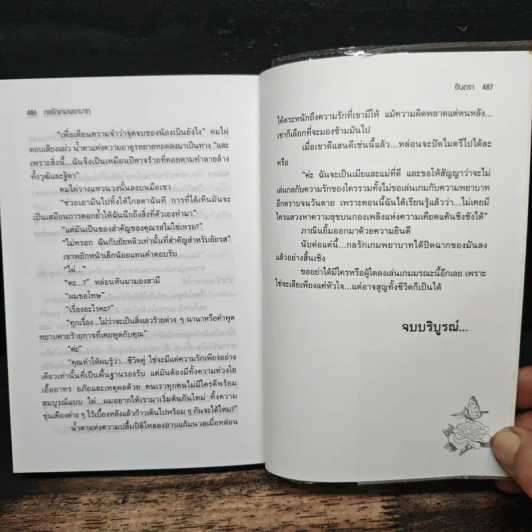 486 กลรักเกมพยาบาท
"เพื่อเตือนความจำว่าจุดจบของน้องเป็นยังไง" คมไผ่
ตอบเสียงแผ่ว น้ำตาแห่งความอาดูรหยาดหยดลงมาเป็นทาง "และ
เพราะสิ่งนี้...ฉันจึงเป็นเหมือนปีศาจร้ายที่คอยตามทำลายล้าง
ทั้งวุฒิและฐิตา"
คมไผ่วางแหวนวงนั้นลงบนมือเขา
"ช่วยเอามันไปทิ้งให้ไกลตาฉันที การที่ได้เห็นมันจะ
เป็นเสมือนการตอกย้ำให้ฉันนึกถึงสิ่งที่ตัวเองทำมา"
"แต่มันเป็นของสำคัญของคุณรสไม่ใช่เหรอ?"
"ไม่หรอก ฉันกับยัยหลิวเท่านั้นที่สำคัญสำหรับยัยรส"
เขาพยักหน้าเล็กน้อยแทนคำตอบรับ
"ไผ่..."
"คะ...?" หล่อนหันมามองสามี
"ผมขอโทษ"
"เรื่องอะไรคะ?"
"ทุกเรื่อง...ไม่ว่าจะเป็นสิ่งเลวร้ายต่าง ๆ นานาหรือคำพูด
หยาบคายร้ายกาจที่เคยพูดกับคุณ"
"ค่ะ"
"คุณทำให้ผมรู้ว่า...ชีวิตคู่ ใช่จะมีแต่ความรักเพียงอย่าง
เดียวเท่านั้นที่เป็นพื้นฐานรองรับ แต่มันต้องมีทั้งความห่วงใย
เอื้ออาทร อภัยและเหตุผลด้วย คนเราทุกคนไม่มีใครดีพร้อม
สมบูรณ์แบบ ไผ่...ผมอยากให้เรามาเริ่มต้นกันใหม่ ทิ้งความ
ขุ่นเคืองต่าง ๆ ไว้เบื้องหลังแล้วก้าวเดินไปพร้อม ๆ กันจะได้ไหม?"
น้ำตาแห่งความปลื้มปีติไหลลงอาบแก้มนวลเมื่อหล่อน
อินตรา 487
ได้ตระหนักถึงความรักที่เขามีให้ แม้ความผิดพลาดแต่หนหลัง...
เขาก็เลือกที่จะมองข้ามมันไป
เมื่อเขาดีแสนดีเช่นนี้แล้ว...หล่อนจะปัดไมตรีไปได้ละ
หรือ
"ค่ะ ฉันจะเป็นเมียและแม่ที่ดี และขอให้สัญญาว่าจะไม่
เล่นกลกับความรักของใครรวมทั้งไม่ขอเล่นเกมกับความพยาบาท
อีกตราบจนวันตาย เพราะตอนนี้ฉันได้เรียนรู้แล้วว่า...ไม่เคยมี
ใครแสวงหาความสุขบนกองเพลิงแห่งความเคียดแค้นชิงชังได้"
ภาณินยิ้มออกมาด้วยความยินดี
นับต่อแต่นี้...กลรักเกมพยาบาทได้ปิดฉากของมันลง
แล้วอย่างสิ้นเชิง
ขออย่าได้มีใครหรือผู้ใดลงเล่นเกมมรณะนี้อีกเลย เพราะ
ใช่จะเสียเพียงแค่หัวใจ...แต่อาจสูญทั้งชีวิตก็เป็นได้
จบบริบูรณ์...